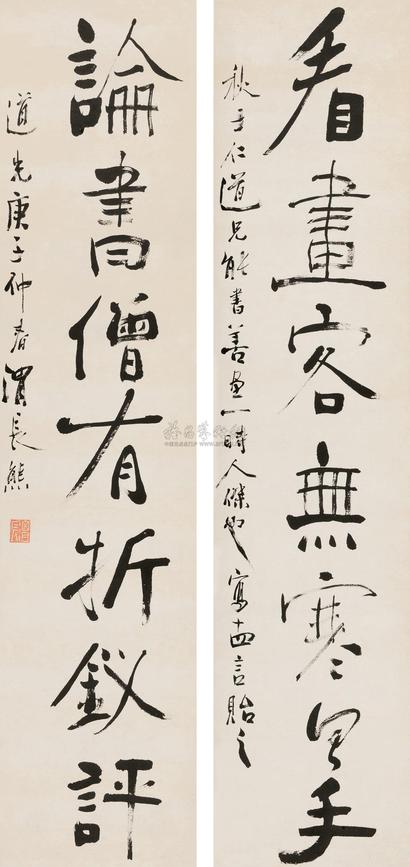 看畫客無寒具手
秋子仁道兄能書善画一時人傑也寫十四言貽之
論書僧有折釵評
道光庚子仲春渭長熊